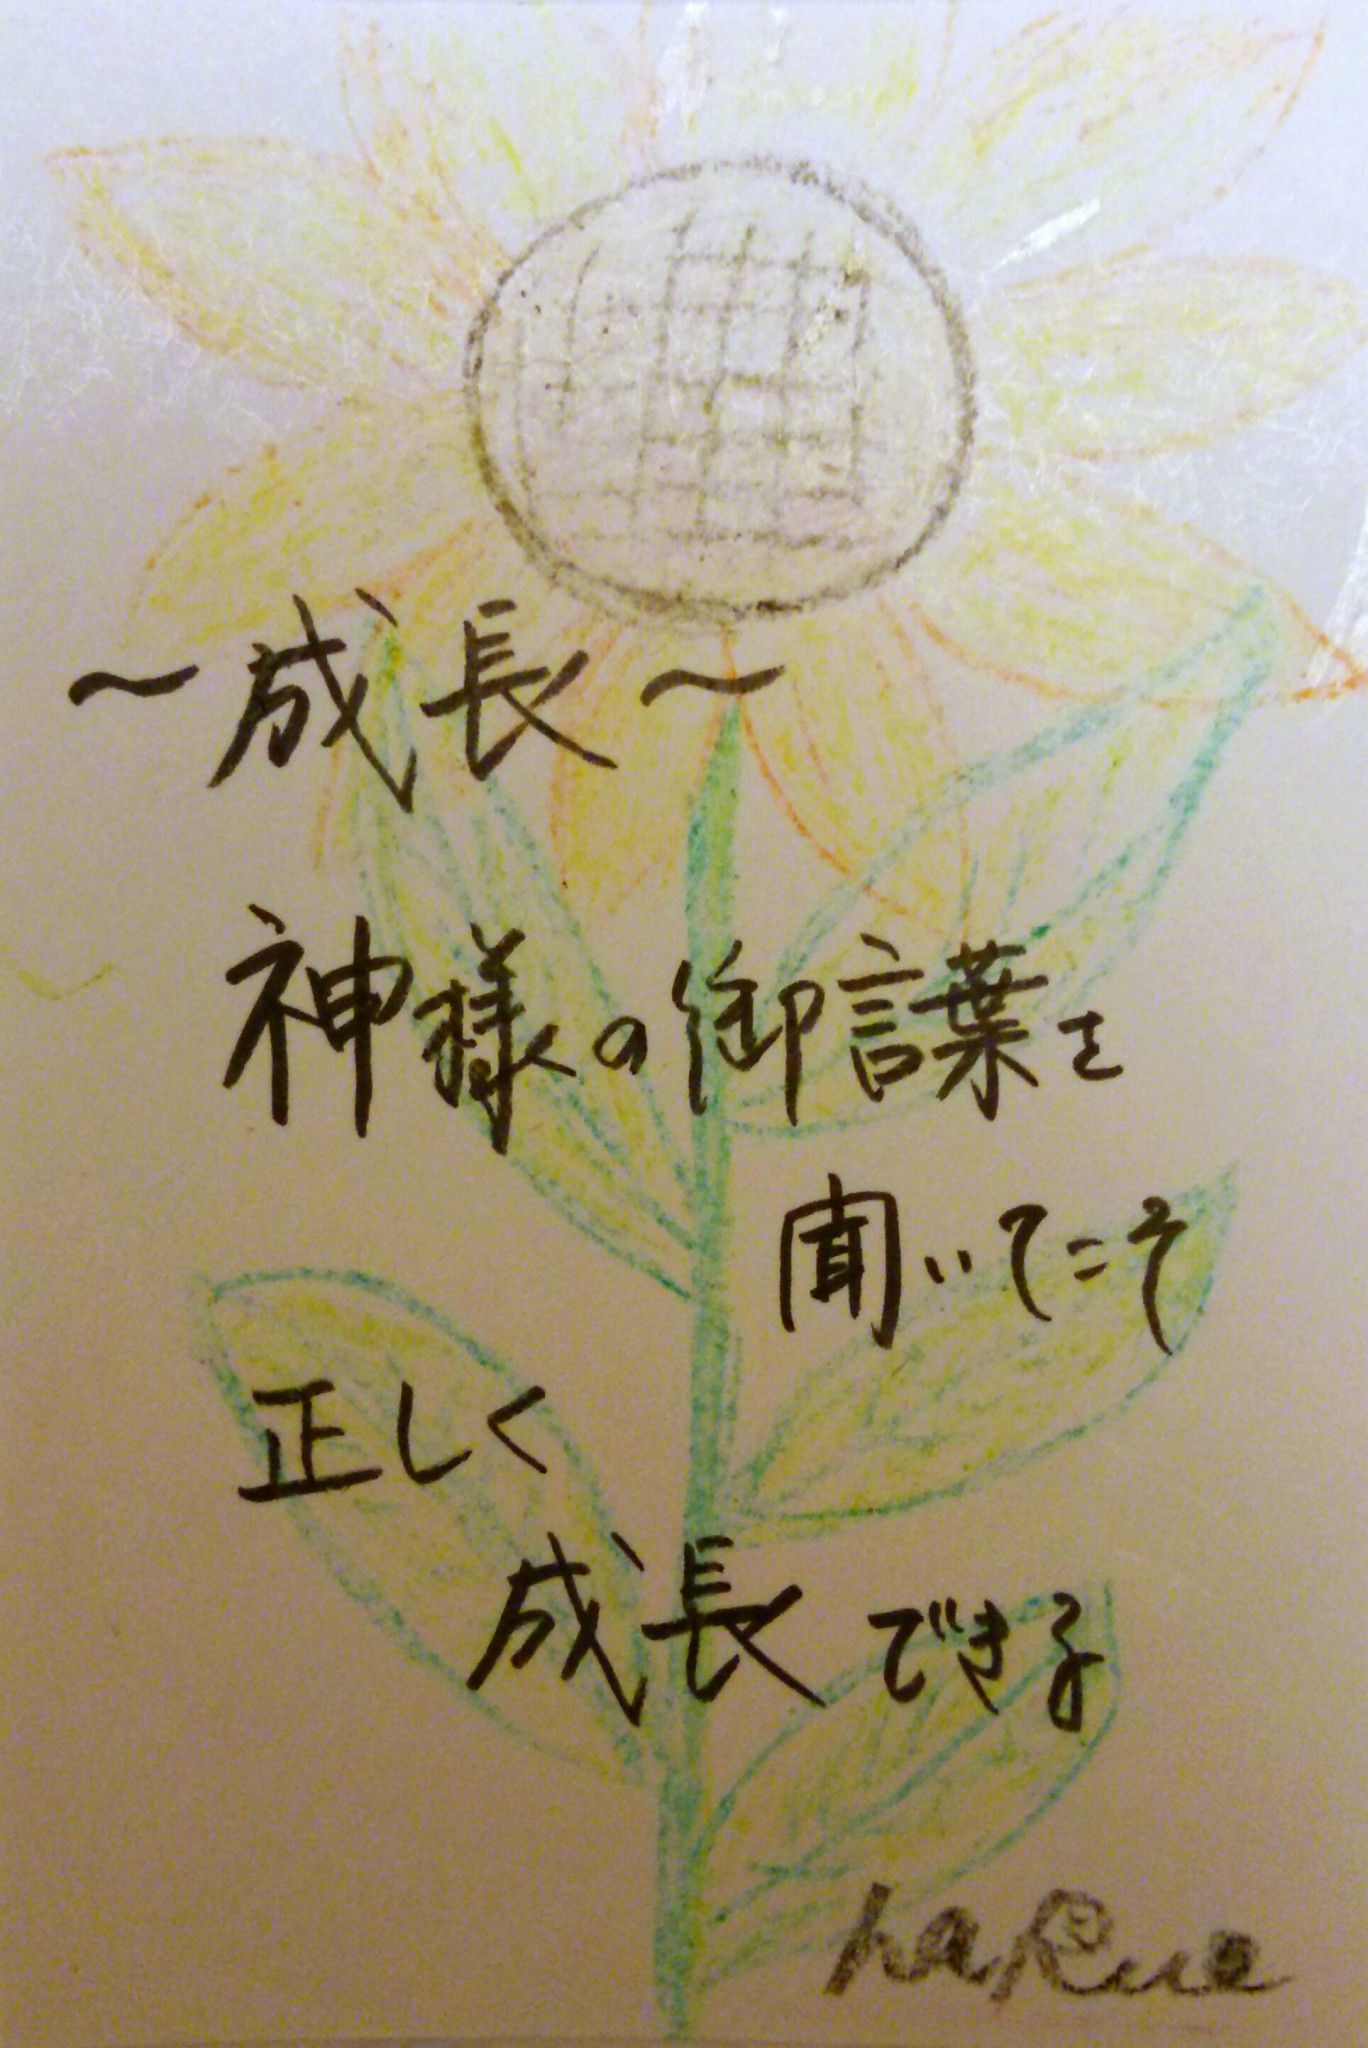 ～成長～
神様の御言葉を
聞いてこそ
正しく
成長できる
haRue